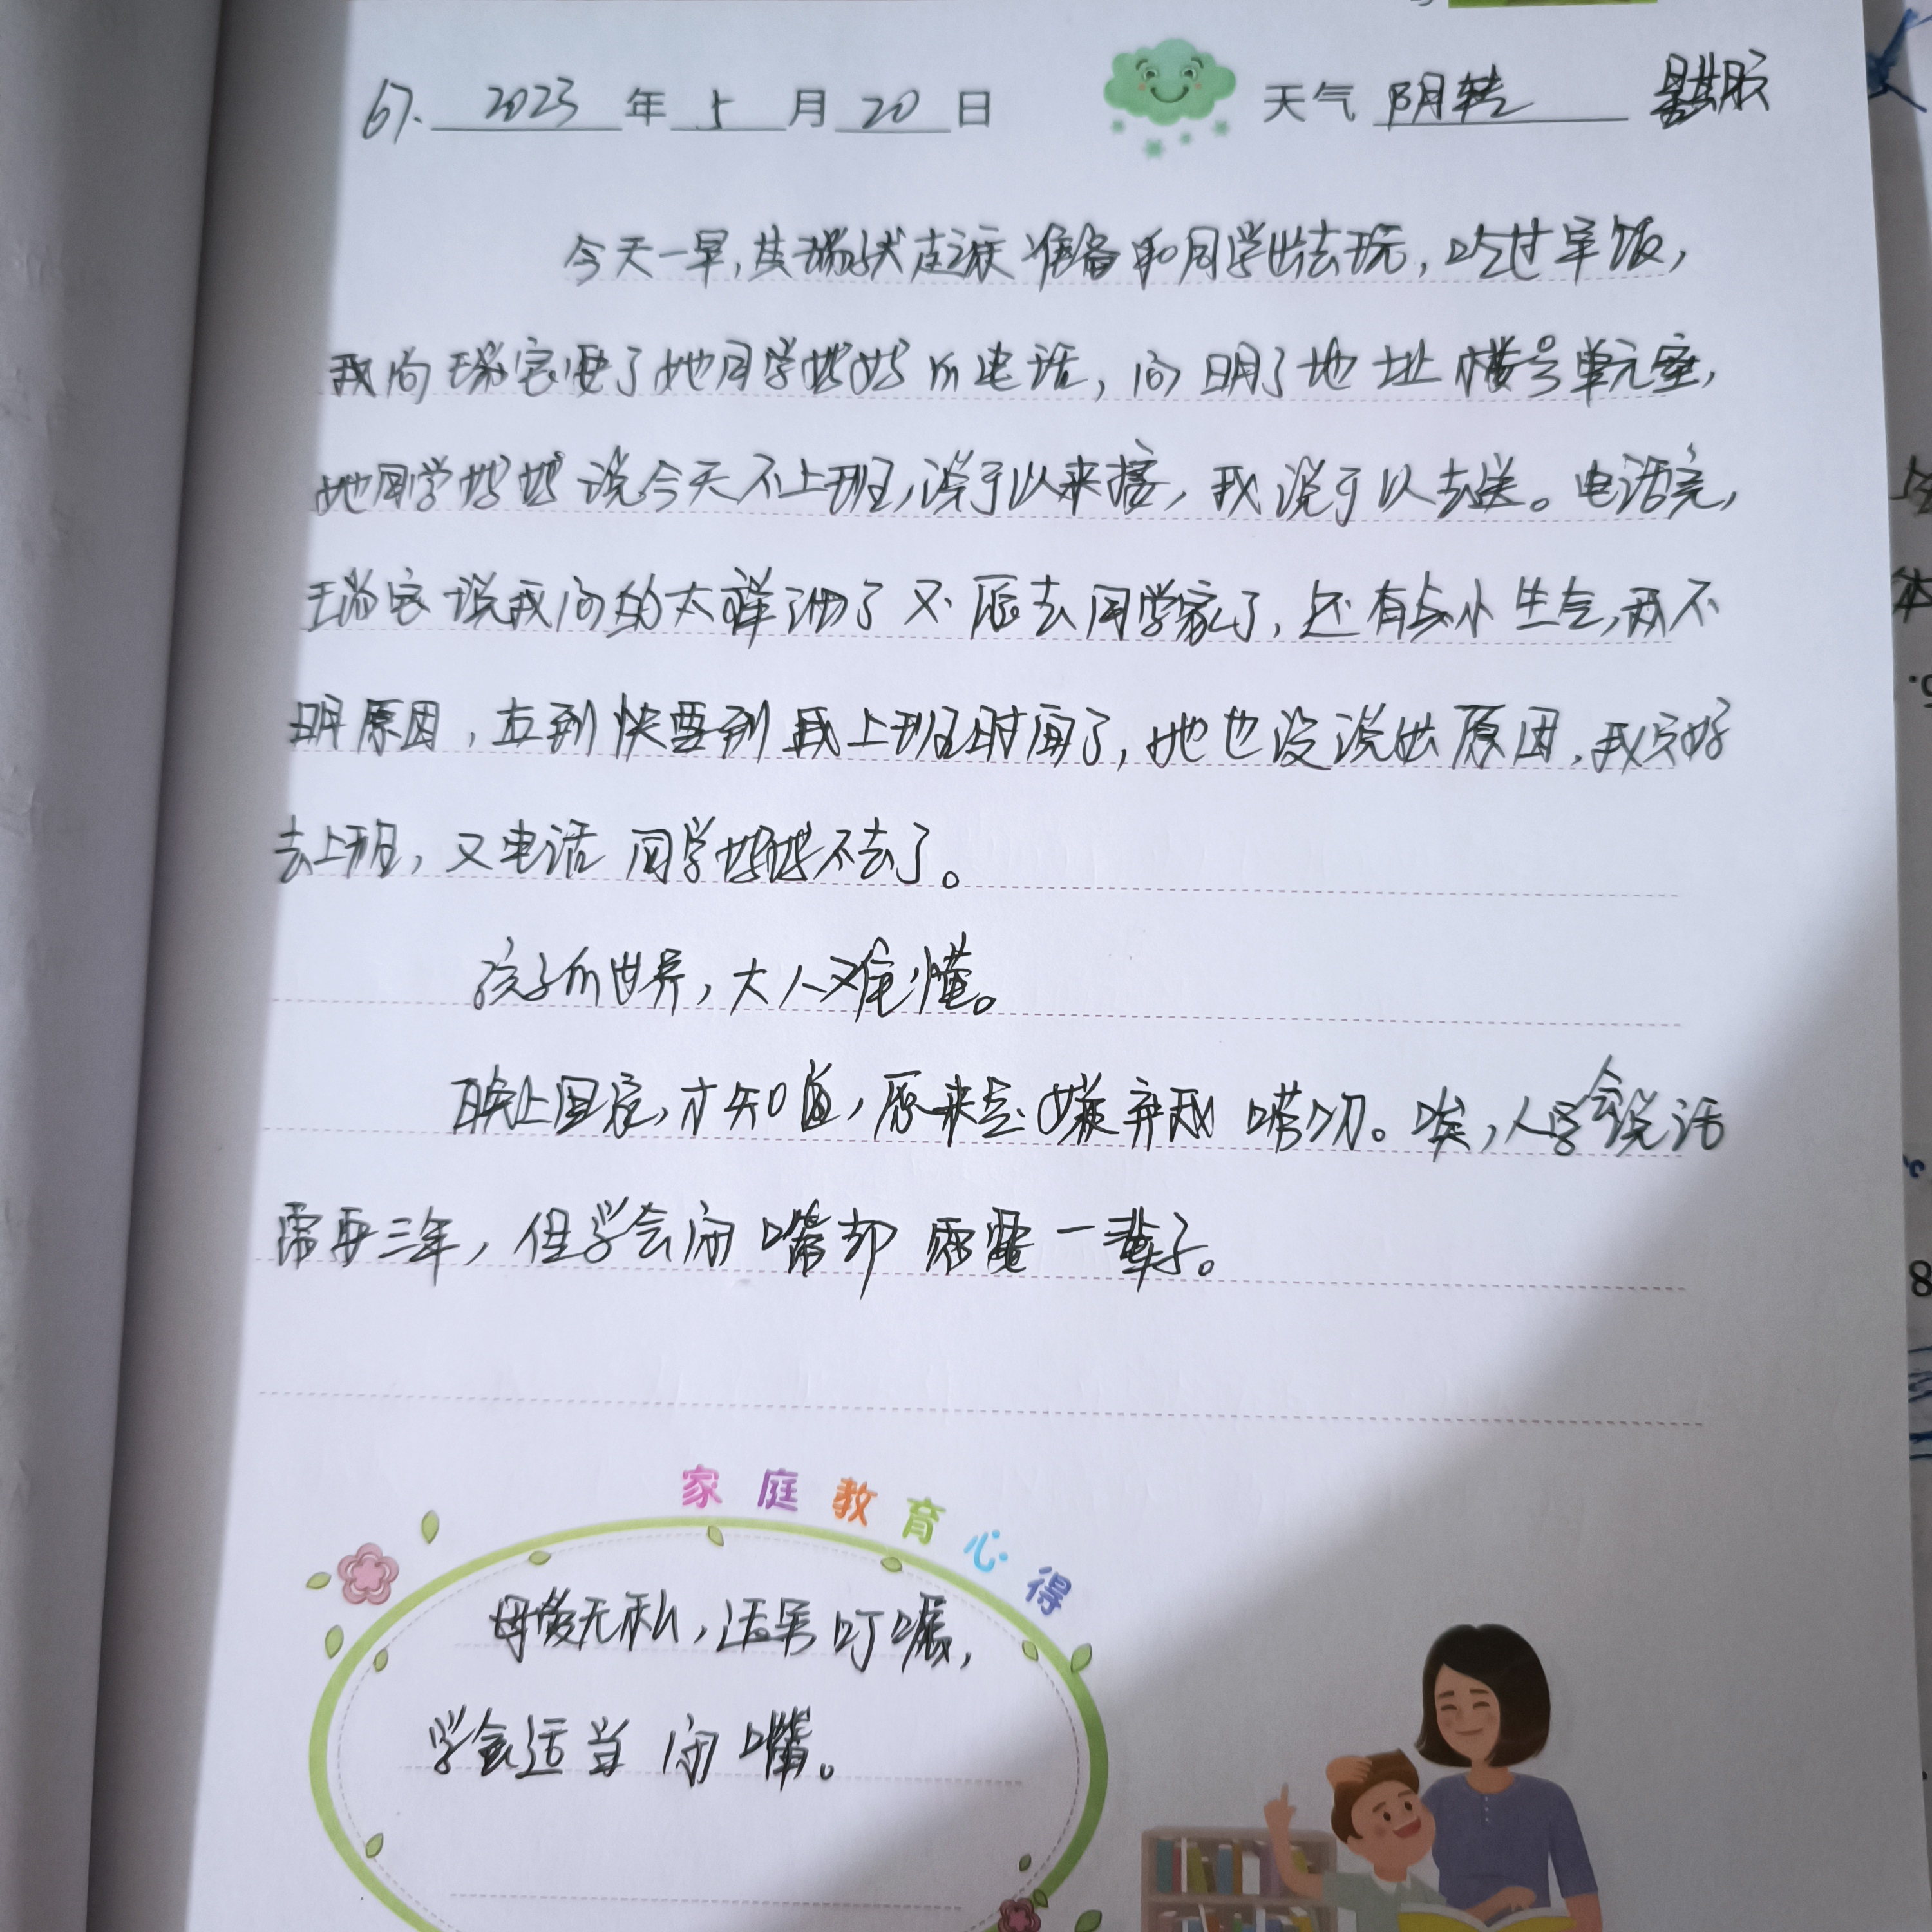 67. 2023 年 5 月 20 日 天气 阴转
今天一早, 准备和同学出去玩, 吃过早饭,
我向瑞宸要了她同学妈妈的电话, 问明了地址楼号单元室,
她同学妈妈说今天不上班, 说可以来接, 我说可以去送。电话完,
瑞宸说我问的太详细了又不愿去同学家了, 还有点小生气, 我不
明原因, 直到快要到我上班时间了, 她也没说出原因, 我只好
去上班, 又电话同学妈妈不去了。
孩子的世界, 大人难懂。
晚上回家, 才知道, 原来是嫌弃我唠叨。唉, 人学会说话
需要三年, 但学会闭嘴却需要一辈子。
家庭教育心得
母爱无私, 话多叮嘱,
学会适当闭嘴。